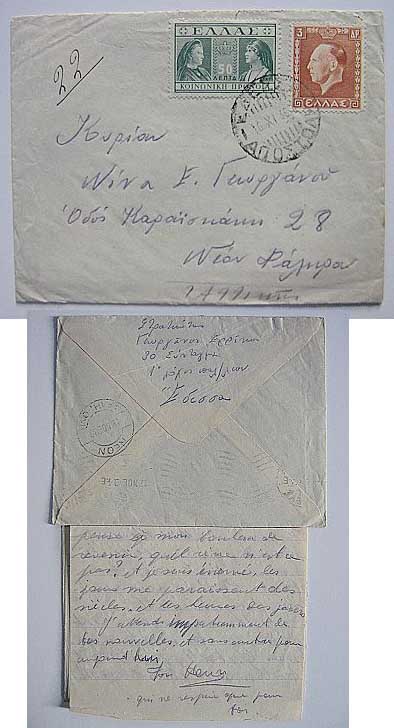 22
ΕΛΛΑΣ
50
ΛΕΠΤΑ
ΚΟΙΝΩΝΙΚΗ ΠΡΟΝΟΙΑ
3 ΔΡ.
ΕΛΛΑΣ
Κυρίαν
Νίνα Ε. Γεωργάνου
Ὁδός Καραϊσκάκη 28
Νέον Φάληρον
Στρατιώτης
Γεωργάνος Ερρίκος
30 Σύνταγμα
1ος λόχος πολ/λων
Ἔδεσσα
ΝΕΟΝ
pense à mon bonheur de
revenir, quel rêve n'est ce
pas? et je suis énervé, les
jours me paraissent des
siècles. et les heures des jours
J'attends impatiemment de
tes nouvelles et sans autre pour
aujourd'hui,
Ton Henri
qui ne respire que pour
toi